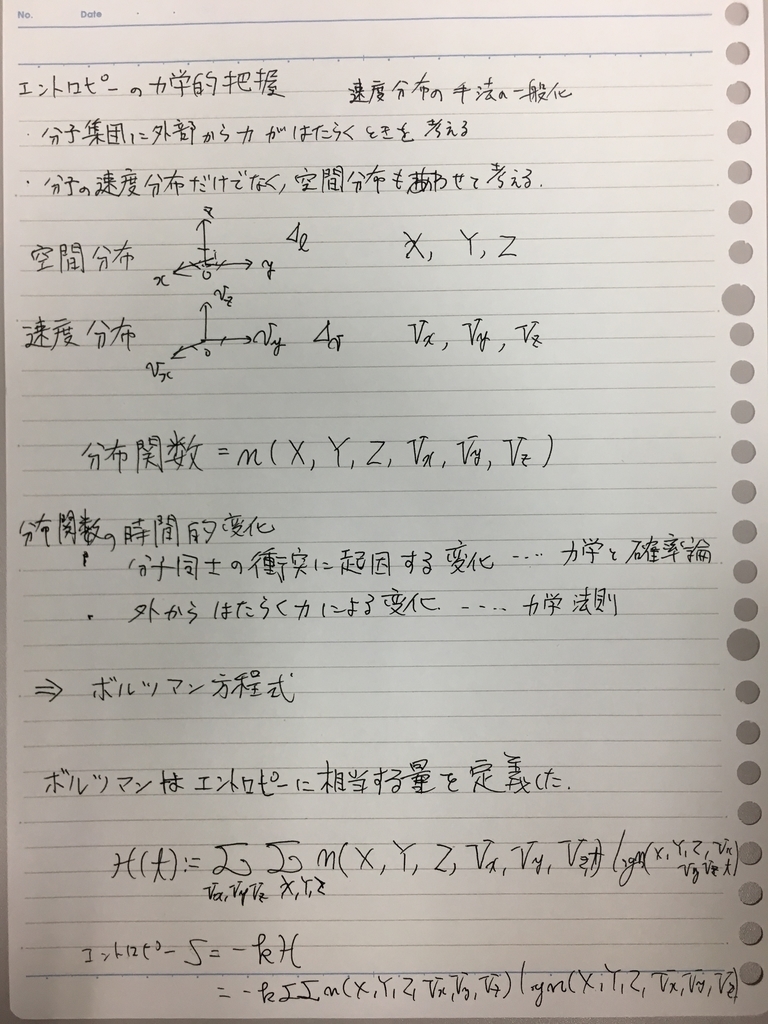 No. Date
エントロピーの力学的把握 速度分布の手法の一般化
・分子集団に外部から力がはたらくときを考える
・分子の速度分布だけでなく、空間分布もあわせて考える.
空間分布 z x 0 y Δl X, Y, Z
速度分布 Vz Vx 0 Vy Δv Vx, Vy, Vz
分布関数 = n(X, Y, Z, Vx, Vy, Vz)
分布関数の時間的変化
・分子同士の衝突に起因する変化 …. 力学と確率論
・外からはたらく力による変化. …. 力学法則
⇒ ボルツマン方程式
ボルツマンはエントロピーに相当する量を定義した.
H(t) := Σ Σ n(X, Y, Z, Vx, Vy, Vz, t) log n(X, Y, Z, Vx, Vy, Vz, t)
Vx, Vy, Vz X, Y, Z
エントロピー S = -kH
= -kΣΣ n(X, Y, Z, Vx, Vy, Vz) log n(X, Y, Z, Vx, Vy, Vz)